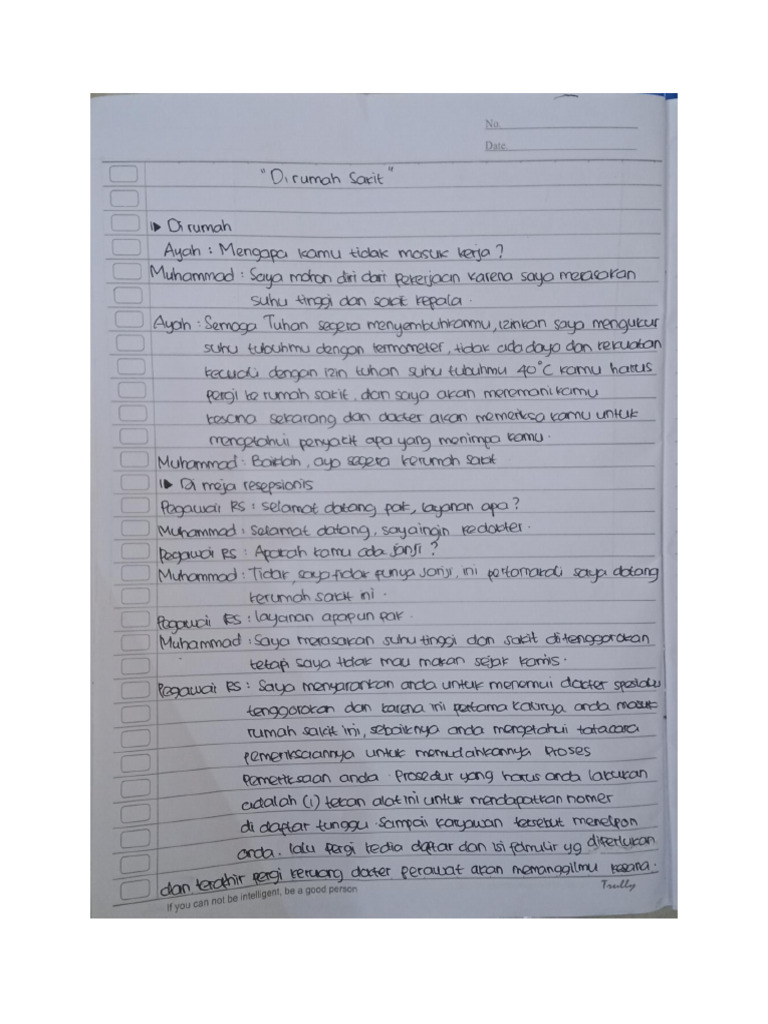 No.
Date.
"Di rumah Sakit"
Di rumah
Ayah : Mengapa kamu tidak masuk kerja ?
Muhammad : Saya mohon diri dari pekerjaan karena saya merasakan
suhu tinggi dan sakit kepala .
Ayah : Semoga Tuhan segera menyembuhkanmu, izinkan saya mengukur
suhu tubuhmu dengan termometer, tidak ada daya dan kekuatan
kecuali dengan izin tuhan suhu tubuhmu 40°C kamu harus
pergi ke rumah sakit, dan saya akan menemani kamu
kesana sekarang dan dokter akan memeriksa kamu untuk
mengetahui penyakit apa yang menimpa kamu .
Muhammad : Baiklah, ayo segera kerumah sakit
Di meja resepsionis
Pegawai RS : selamat datang pak, layanan apa ?
Muhammad : Selamat datang, saya ingin kedokter .
Pegawai RS : Apakah kamu ada janji ?
Muhammad : Tidak, saya tidak punya janji, ini pertamakali saya datang
kerumah sakit ini .
Pegawai RS : layanan apapun pak .
Muhammad : Saya merasakan suhu tinggi dan sakit ditenggorokan
tetapi saya tidak mau makan sejak kamis .
Pegawai RS : Saya menyarankan anda untuk menemui dokter spesialis
tenggorokan dan karena ini pertama kalinya anda masuk
rumah sakit ini, sebaiknya anda mengetahui tatacara
pemeriksaannya untuk memudahkannya Proses
Pemeriksaan anda . Prosedur yang harus anda lakukan
adalah (1) tekan alat ini untuk mendapatkan nomer
di daftar tunggu sampai karyawan tersebut menelpon
anda . lalu pergi kedia daftar dan isi formulir yg diperlukan
dan terakhir pergi keruang dokter perawat akan memanggilmu kesana .
If you can not be intelligent, be a good person
Trully